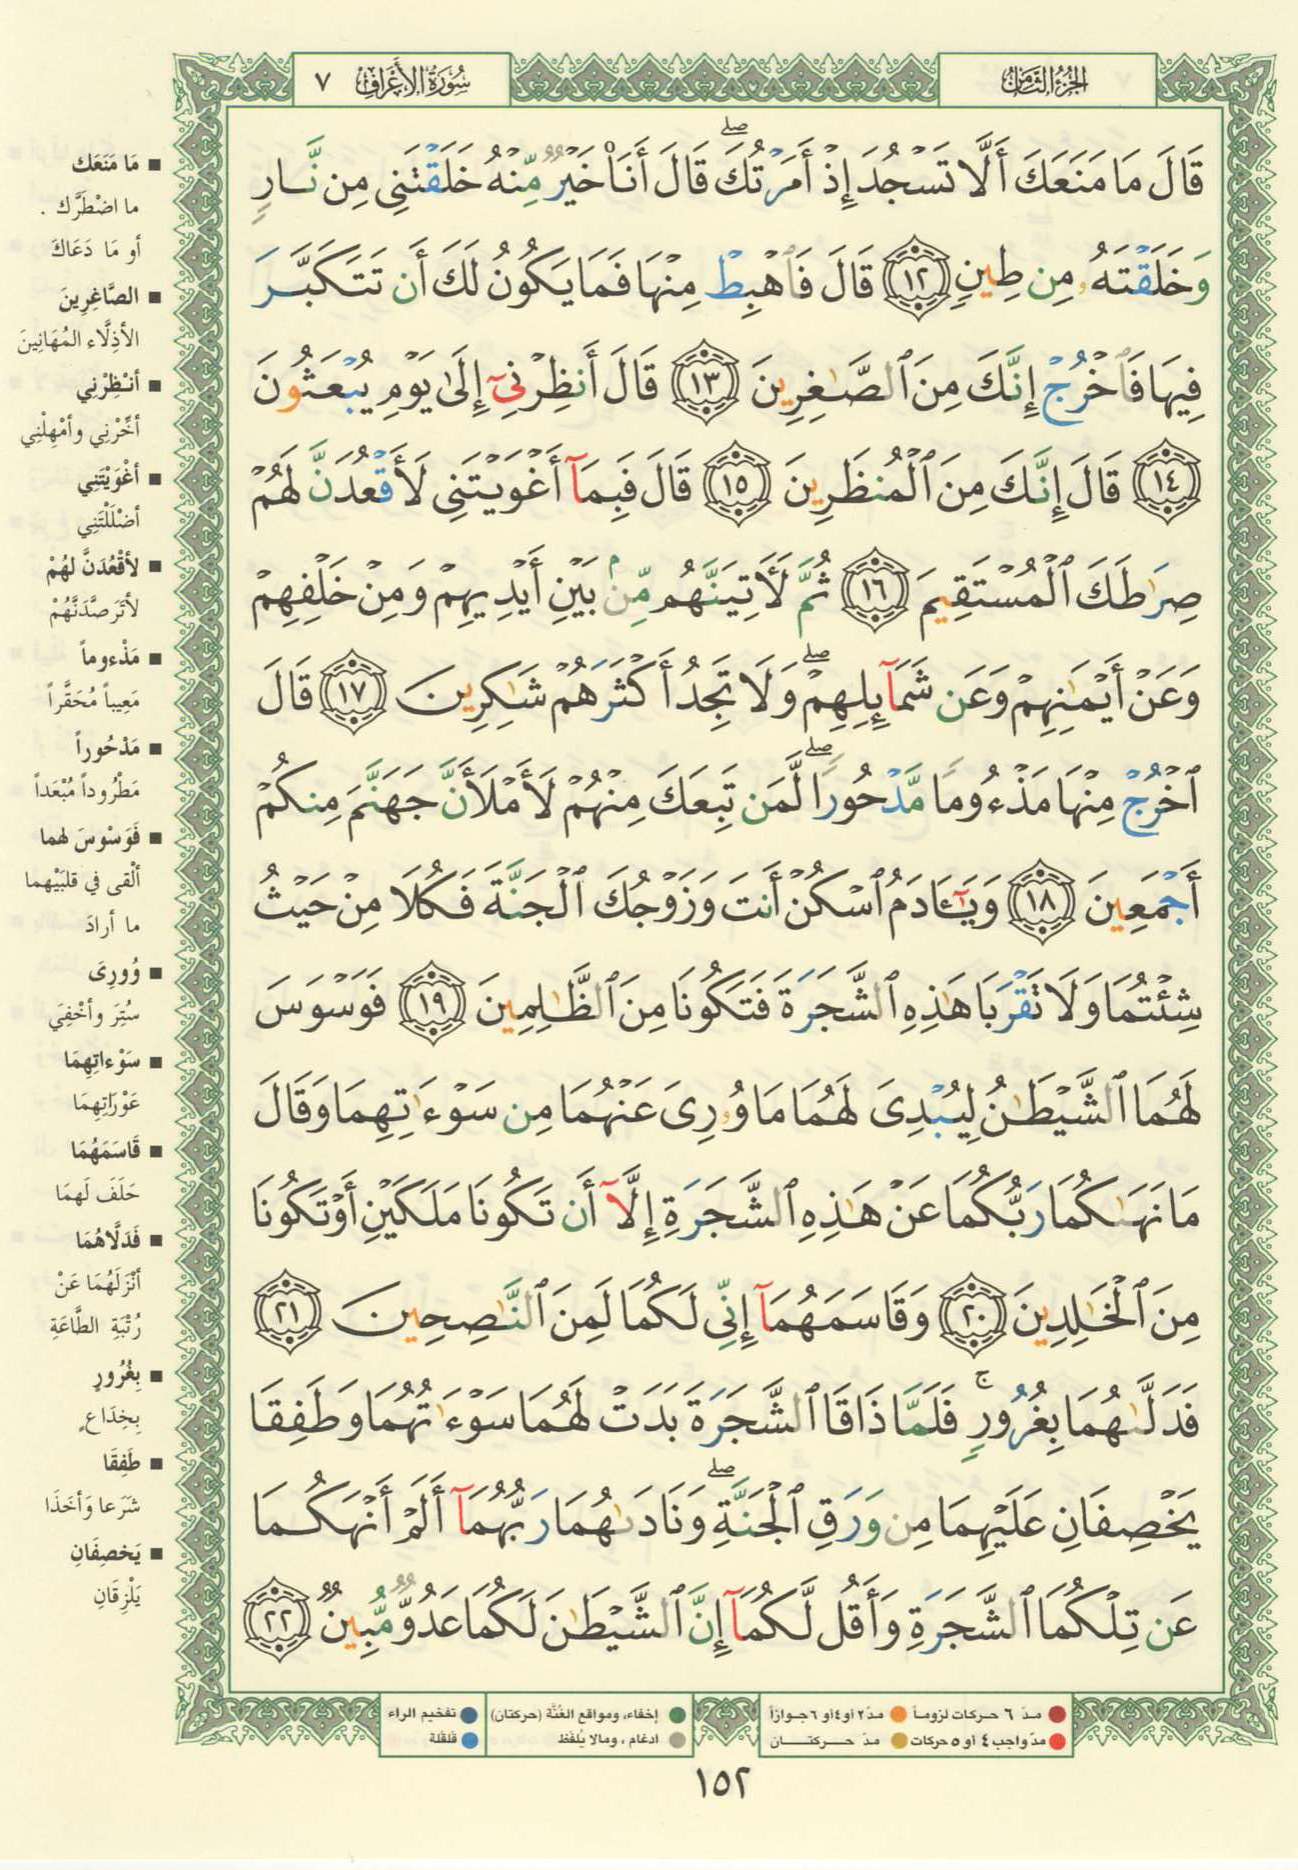 الجزء الثامن
سورة الأعراف ٧
قَالَ مَا مَنَعَكَ أَلَّا تَسْجُدَ إِذْ أَمَرْتُكَ ۖ قَالَ أَنَا۠ خَيْرٌ مِّنْهُ خَلَقْتَنِى مِن نَّارٍ
وَخَلَقْتَهُۥ مِن طِينٍ ﴿١٢﴾ قَالَ فَٱهْبِطْ مِنْهَا فَمَا يَكُونُ لَكَ أَن تَتَكَبَّرَ
فِيهَا فَٱخْرُجْ إِنَّكَ مِنَ ٱلصَّٰغِرِينَ ﴿١٣﴾ قَالَ أَنظِرْنِىٓ إِلَىٰ يَوْمِ يُبْعَثُونَ
﴿١٤﴾ قَالَ إِنَّكَ مِنَ ٱلْمُنظَرِينَ ﴿١٥﴾ قَالَ فَبِمَآ أَغْوَيْتَنِى لَأَقْعُدَنَّ لَهُمْ
صِرَٰطَكَ ٱلْمُسْتَقِيمَ ﴿١٦﴾ ثُمَّ لَءَاتِيَنَّهُم مِّنۢ بَيْنِ أَيْدِيهِمْ وَمِنْ خَلْفِهِمْ
وَعَنْ أَيْمَٰنِهِمْ وَعَن شَمَآئِلِهِمْ ۖ وَلَا تَجِدُ أَكْثَرَهُمْ شَٰكِرِينَ ﴿١٧﴾ قَالَ
ٱخْرُجْ مِنْهَا مَذْءُومًا مَّدْحُورًا ۖ لَّمَن تَبِعَكَ مِنْهُمْ لَأَمْلَأَنَّ جَهَنَّمَ مِنكُمْ
أَجْمَعِينَ ﴿١٨﴾ وَيَٰٓـَٔادَمُ ٱسْكُنْ أَنتَ وَزَوْجُكَ ٱلْجَنَّةَ فَكُلَا مِنْ حَيْثُ
شِئْتُمَا وَلَا تَقْرَبَا هَٰذِهِ ٱلشَّجَرَةَ فَتَكُونَا مِنَ ٱلظَّٰلِمِينَ ﴿١٩﴾ فَوَسْوَسَ
لَهُمَا ٱلشَّيْطَٰنُ لِيُبْدِىَ لَهُمَا مَا وُۥرِىَ عَنْهُمَا مِن سَوْءَٰتِهِمَا وَقَالَ
مَا نَهَىٰكُمَا رَبُّكُمَا عَنْ هَٰذِهِ ٱلشَّجَرَةِ إِلَّآ أَن تَكُونَا مَلَكَيْنِ أَوْ تَكُونَا
مِنَ ٱلْخَٰلِدِينَ ﴿٢٠﴾ وَقَاسَمَهُمَآ إِنِّى لَكُمَا لَمِنَ ٱلنَّٰصِحِينَ ﴿٢١﴾
فَدَلَّىٰهُمَا بِغُرُورٍ ۚ فَلَمَّا ذَاقَا ٱلشَّجَرَةَ بَدَتْ لَهُمَا سَوْءَٰتُهُمَا وَطَفِقَا
يَخْصِفَانِ عَلَيْهِمَا مِن وَرَقِ ٱلْجَنَّةِ ۖ وَنَادَىٰهُمَا رَبُّهُمَآ أَلَمْ أَنْهَكُمَا
عَن تِلْكُمَا ٱلشَّجَرَةِ وَأَقُل لَّكُمَآ إِنَّ ٱلشَّيْطَٰنَ لَكُمَا عَدُوٌّ مُّبِينٌ ﴿٢٢﴾
■ مَا مَنَعَك
ما اضْطَرَّك .
أو مَا دَعَاكَ
■ الصَّاغِرِينَ
الأذِلَّاء المُهَانِينَ
■ أنْظِرْنِي
أخِّرْنِي وأمْهِلْنِي
■ أغْوَيْتَنِي
أضْلَلْتَنِي
■ لأقْعُدَنَّ لهُمْ
لأتَرَصَّدَنَّهُمْ
■ مَذْءوماً
مَعِيباً مُحَقَّراً
■ مَدْحُوراً
مَطْرُوداً مُبْعَداً
■ فَوَسْوسَ لهما
ألْقى في قلبَيْهما
ما أرادَ
■ وُورِىَ
سُتِرَ وأخْفِيَ
■ سَوْءاتِهِمَا
عَوْرَاتِهِمَا
■ قَاسَمَهُمَا
حَلَفَ لَهمَا
■ فَدَلَّاهُمَا
أنْزَلَهُمَا عَنْ
رُتْبَةِ الطَّاعَةِ
■ بِغُرُورٍ
بِخِدَاعٍ
■ طَفِقَا
شَرَعا وَأخَذَا
■ يَخصِفَانِ
يَلْزِقَانِ
مدّ ٦ حركات لزوماً ● مدّ ٢ أو ٤ أو ٦ جوازاً
مدّ واجب ٤ أو ٥ حركات ● مدّ حــركتــــان
إخفاء، ومواقع الغُنَّة (حركتان)
ادغام ، ومالا يُلفَظ
تفخيم الراء
قلقلة
١٥٢